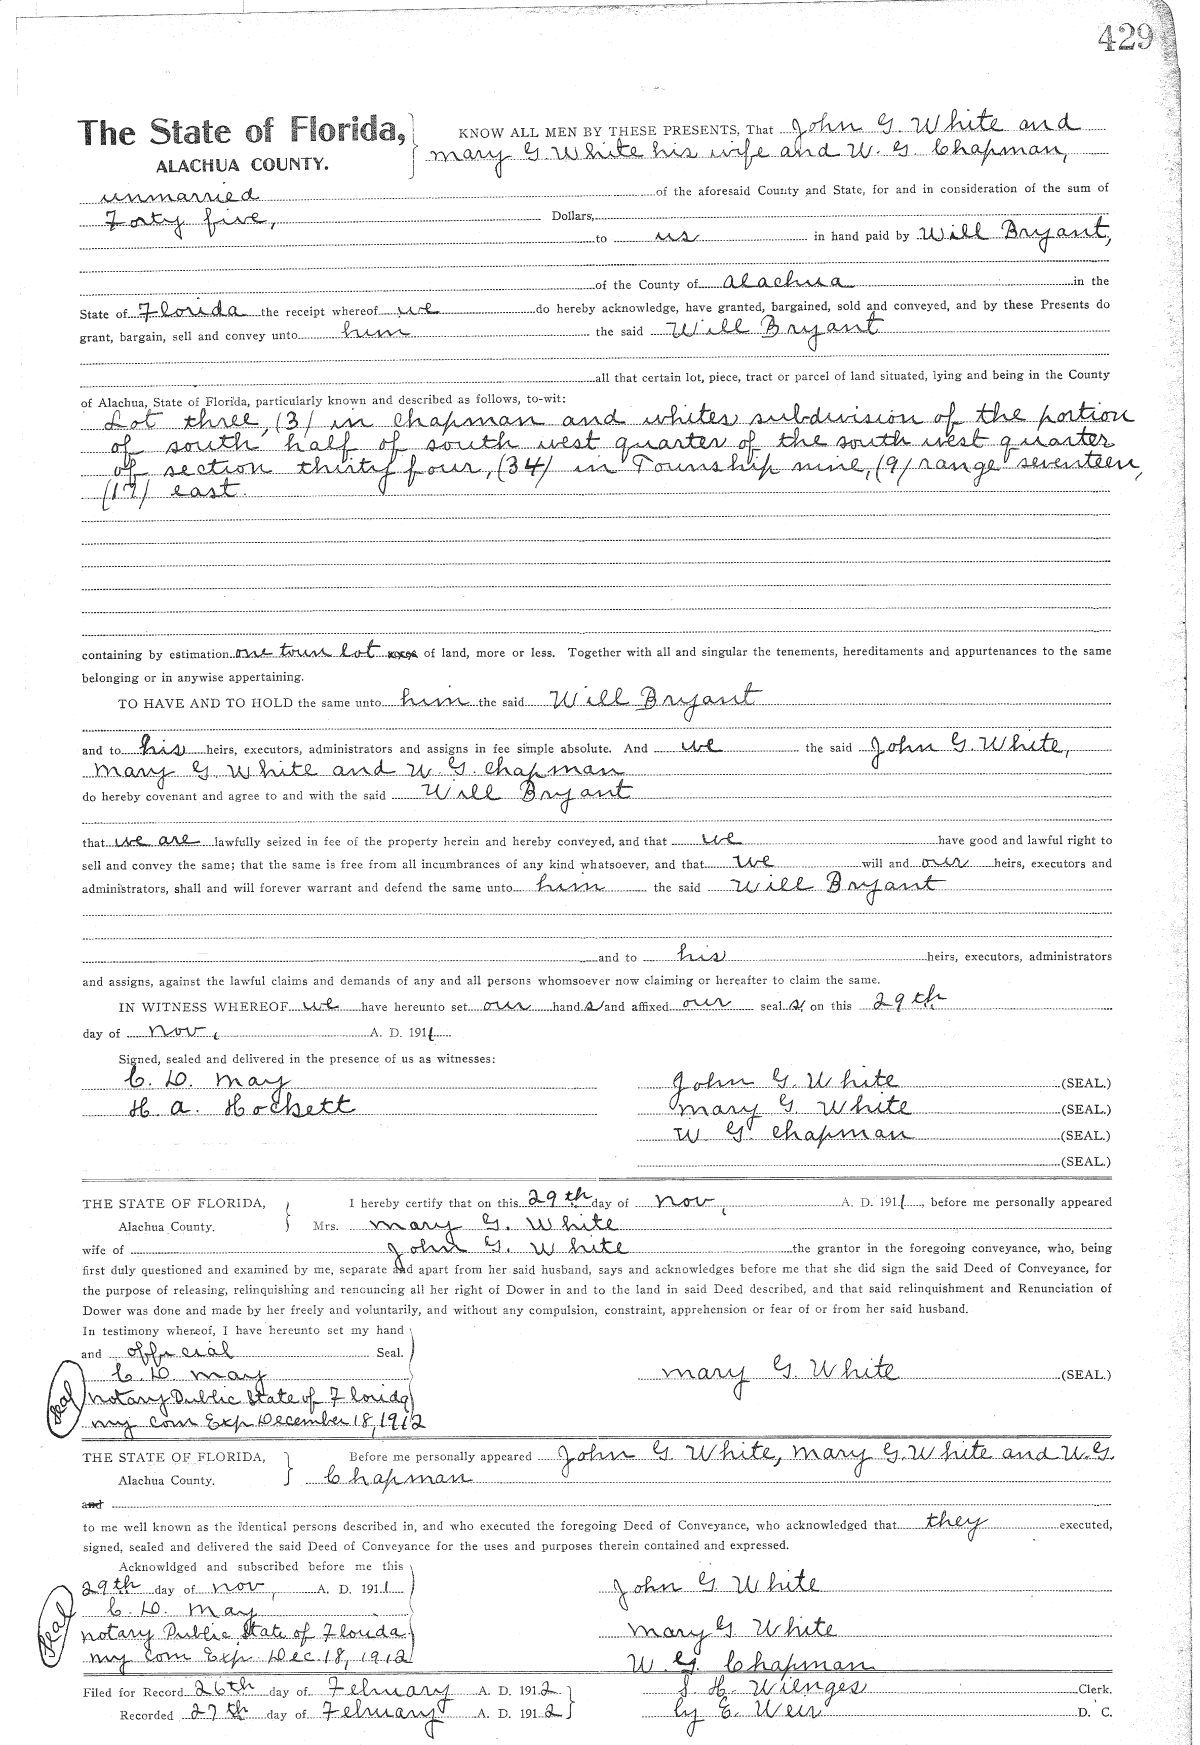 429
The State of Florida, KNOW ALL MEN BY THESE PRESENTS, That John G. White and
ALACHUA COUNTY. Mary G. White his wife and W. G. Chapman,
unmarried of the aforesaid County and State, for and in consideration of the sum of
Forty five, Dollars,
to us in hand paid by Will Bryant,
of the County of Alachua in the
State of Florida the receipt whereof we do hereby acknowledge, have granted, bargained, sold and conveyed, and by these Presents do
grant, bargain, sell and convey unto him the said Will Bryant
all that certain lot, piece, tract or parcel of land situated, lying and being in the County
of Alachua, State of Florida, particularly known and described as follows, to-wit:
Lot three, (3) in Chapman and Whites subdivision of the portion
of south half of south west quarter of the south west quarter
of section thirty four, (34) in Township nine, (9) range seventeen,
(17) east.
containing by estimation one town lot acres of land, more or less. Together with all and singular the tenements, hereditaments and appurtenances to the same
belonging or in anywise appertaining.
TO HAVE AND TO HOLD the same unto him the said Will Bryant
and to his heirs, executors, administrators and assigns in fee simple absolute. And we the said John G. White,
Mary G White and W. G. Chapman
do hereby covenant and agree to and with the said Will Bryant
that we are lawfully seized in fee of the property herein and hereby conveyed, and that we have good and lawful right to
sell and convey the same; that the same is free from all incumbrances of any kind whatsoever, and that we will and our heirs, executors and
administrators, shall and will forever warrant and defend the same unto him the said Will Bryant
and to his heirs, executors, administrators
and assigns, against the lawful claims and demands of any and all persons whomsoever now claiming or hereafter to claim the same.
IN WITNESS WHEREOF we have hereunto set our hand s and affixed our seal s, on this 29th
day of Nov, A. D. 1911
Signed, sealed and delivered in the presence of us as witnesses:
C. D. May John G. White (SEAL.)
H. A. Hockett Mary G. White (SEAL.)
W G. Chapman (SEAL.)
(SEAL.)
THE STATE OF FLORIDA, I hereby certify that on this 29th day of Nov, A. D. 1911, before me personally appeared
Alachua County. Mrs. Mary G. White
wife of John G. White the grantor in the foregoing conveyance, who, being
first duly questioned and examined by me, separate and apart from her said husband, says and acknowledges before me that she did sign the said Deed of Conveyance, for
the purpose of releasing, relinquishing and renouncing all her right of Dower in and to the land in said Deed described, and that said relinquishment and Renunciation of
Dower was done and made by her freely and voluntarily, and without any compulsion, constraint, apprehension or fear of or from her said husband.
In testimony whereof, I have hereunto set my hand
and official Seal.
C. D. May Mary G. White (SEAL)
Seal Notary Public State of Florida
my com Exp December 18, 1912
THE STATE OF FLORIDA, Before me personally appeared John G. White, Mary G. White and W. G.
Alachua County. Chapman
and
to me well known as the identical persons described in, and who executed the foregoing Deed of Conveyance, who acknowledged that they executed,
signed, sealed and delivered the said Deed of Conveyance for the uses and purposes therein contained and expressed.
Acknowldged and subscribed before me this
29th day of Nov, A. D. 1911 John G. White
C. D. May
Seal Notary Public State of Florida Mary G White
my com Exp. Dec. 18, 1912 W. G. Chapman
Filed for Record 26th day of February A. D. 1912 S. H. Wienges Clerk.
Recorded 27th day of February A. D. 1912 by E. Weir D. C.